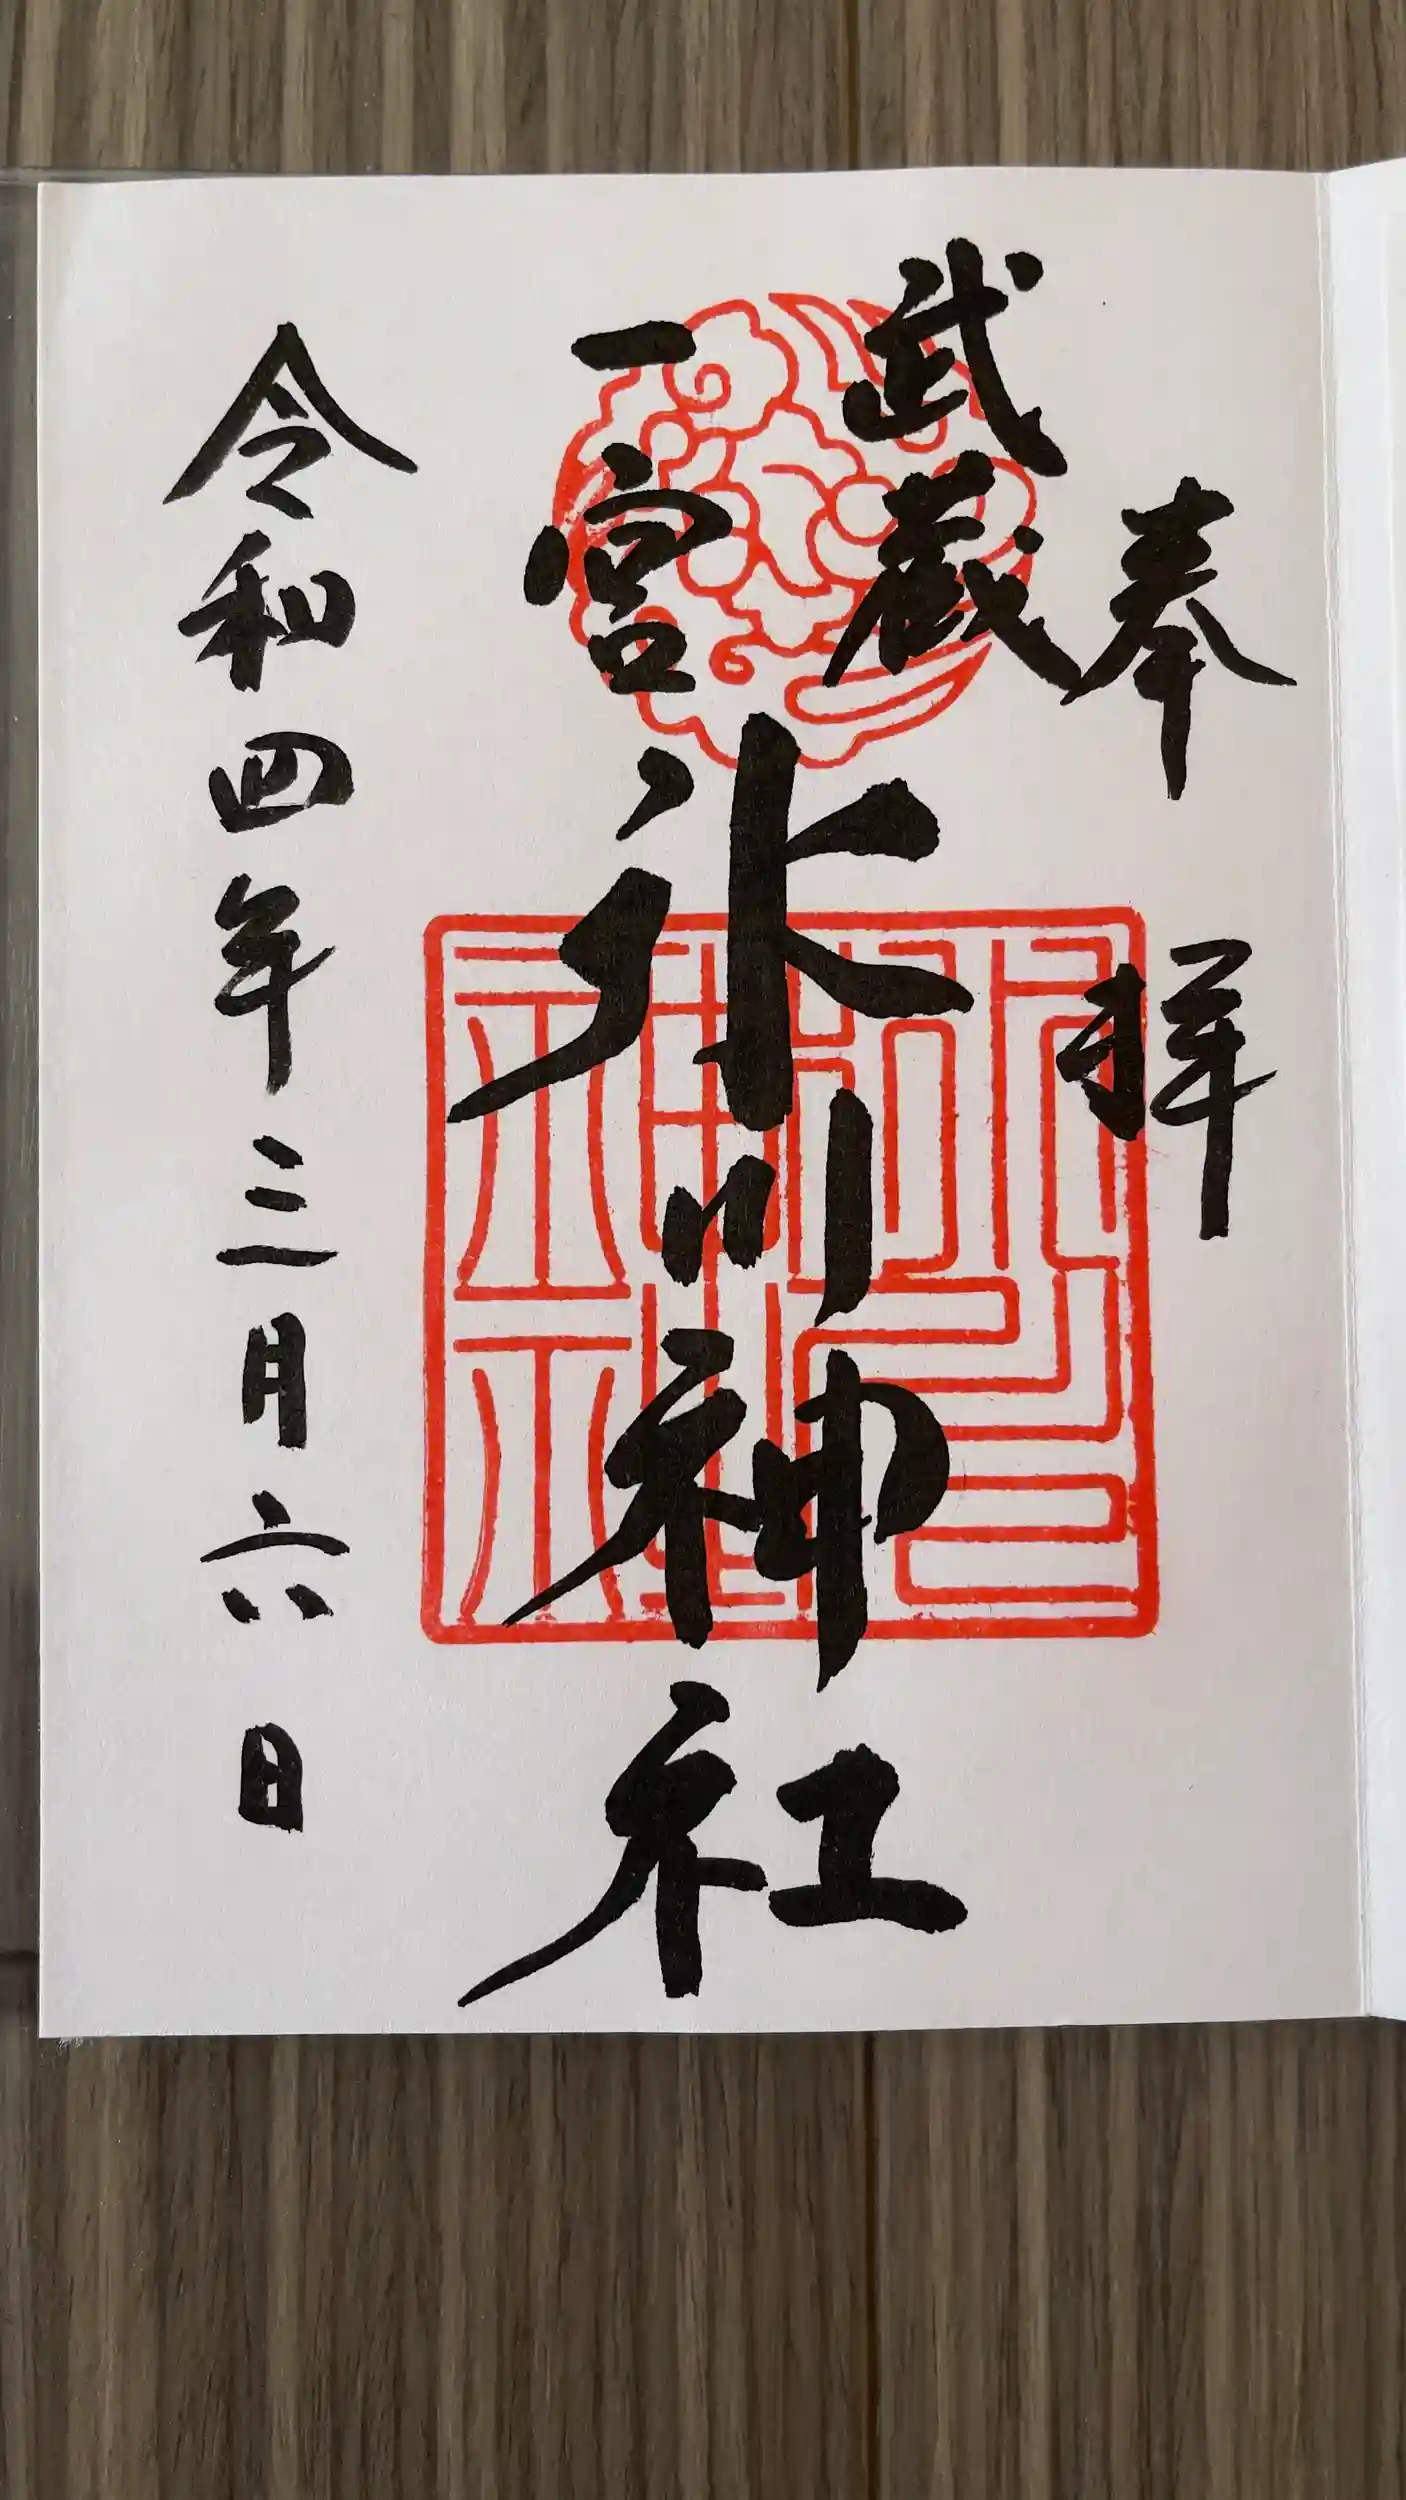 奉拝
武蔵
一宮
氷川神社
令和四年三月六日
氷川
神社